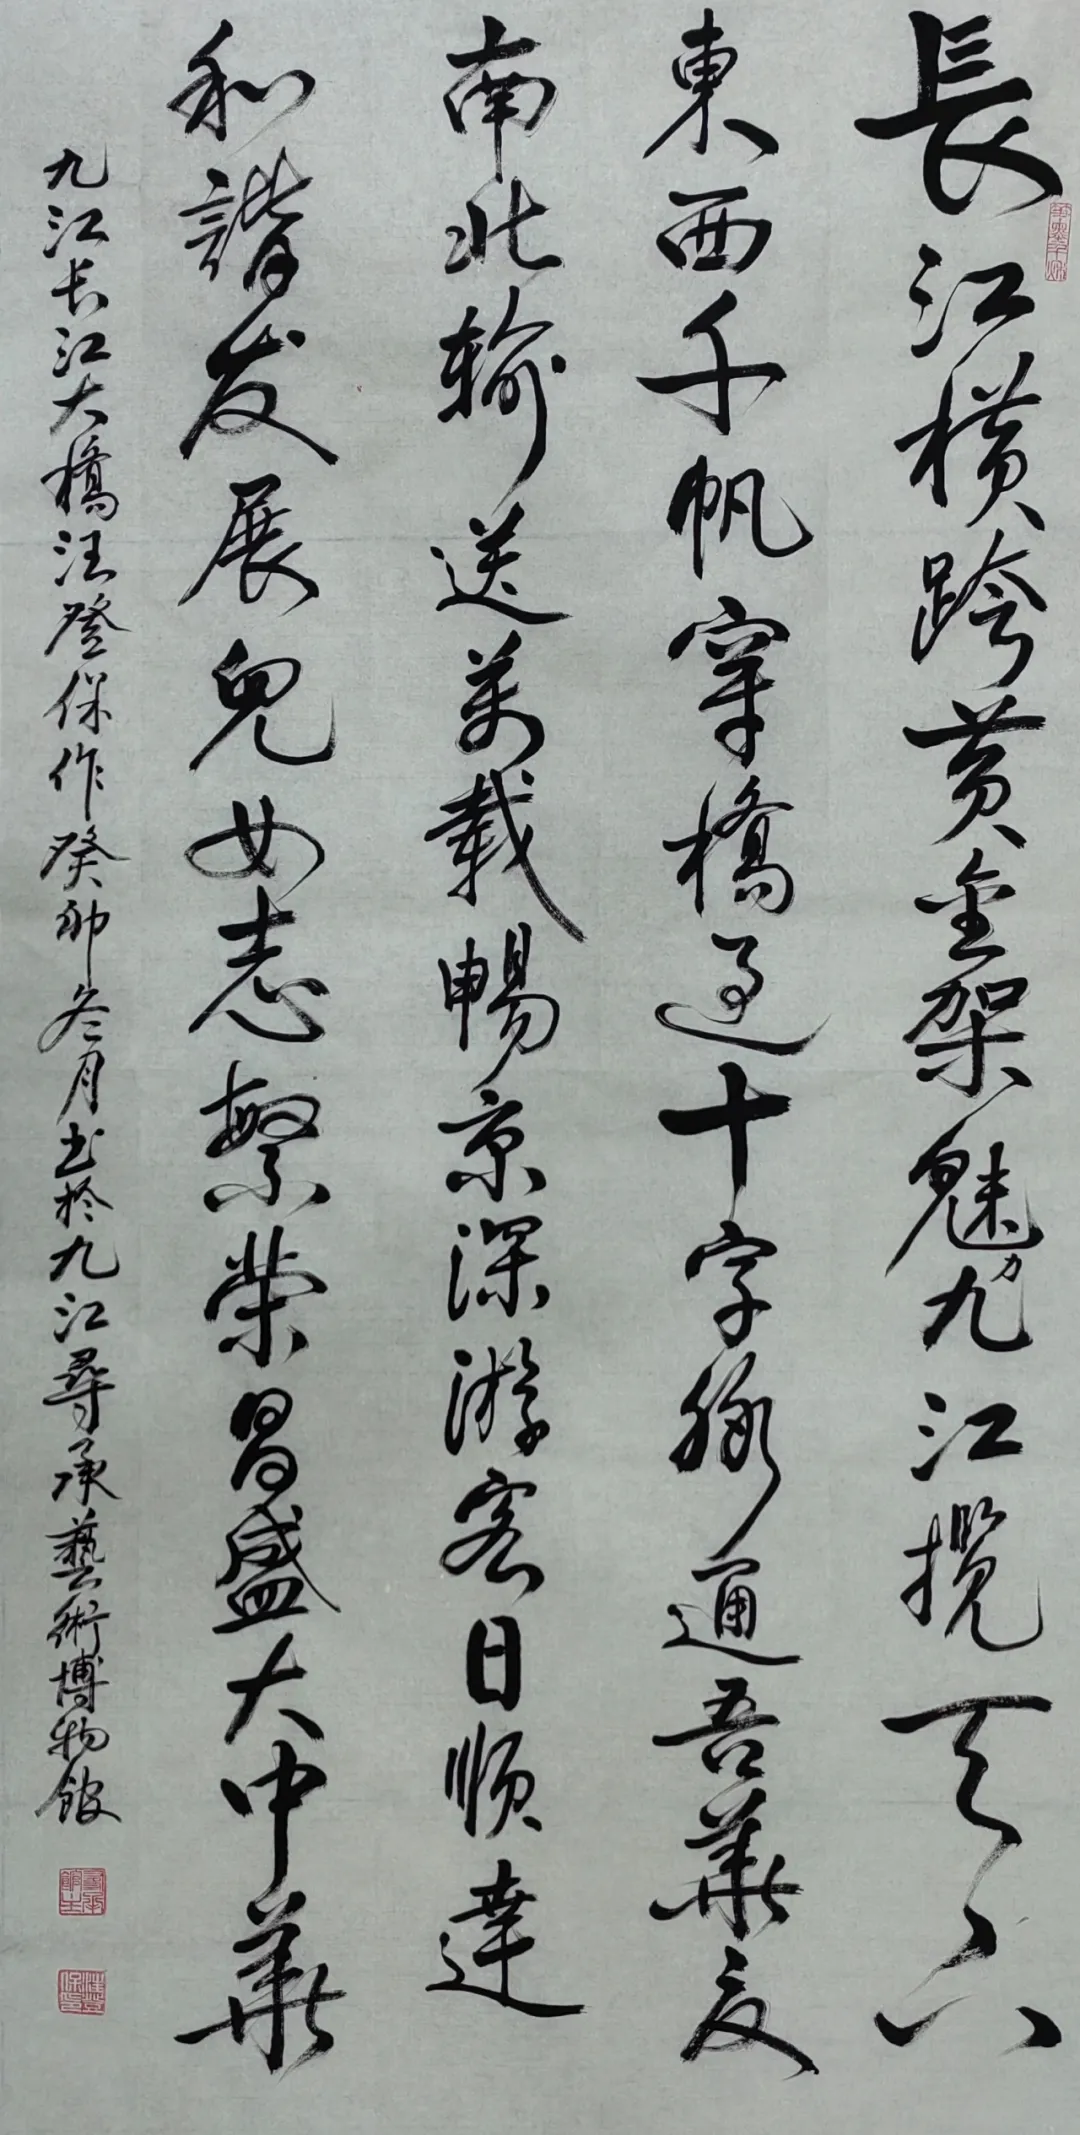 長江横跨黄金架魅力九江揽天下
東西千帆穿橋过十字脉通吾華夏
南北输送萬載暢京深游客日顺達
和諧发展兒女志繁榮昌盛大中華
九江长江大橋汪登保作癸卯冬月书於九江尋承藝術博物館